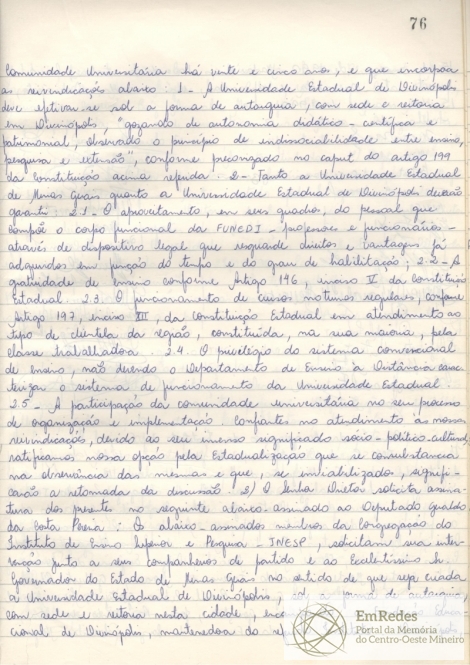 76
Comunidade Universitária há vinte e cinco anos, e que incorpora
as reivindicações abaixo: 1 - A Universidade Estadual de Divinópolis
deve efetivar-se sob a forma de autarquia, com sede e reitoria
em Divinópolis, "gozando de autonomia didático-científica e
patrimonial, observado o princípio de indissociabilidade entre ensino,
pesquisa e extensão", conforme preconizado no caput do artigo 199
da Constituição acima referida: 2 - Tanto a Universidade Estadual
de Minas Gerais quanto a Universidade Estadual de Divinópolis deverão
garantir: 2.1 - O aproveitamento, em seus quadros, do pessoal que
compõe o corpo funcional da FUNEDI - professores e funcionários -
através de dispositivo legal que resguarde direitos e vantagens já
adquiridos em função do tempo e do grau de habilitação; 2.2 - A
gratuidade de ensino conforme Artigo 196, inciso V da Constituição
Estadual. 2.3. O funcionamento de cursos noturnos regulares, conforme
Artigo 197, inciso III, da Constituição Estadual em atendimento ao
tipo de clientela da região, constituída, na sua maioria, pela
classe trabalhadora. 2.4. O privilégio do sistema convencional
de ensino, não devendo o Departamento de Ensino à Distância carac-
terizar o sistema de funcionamento da Universidade Estadual.
2.5 - A participação da comunidade universitária no seu processo
de organização e implementação. Confiantes no atendimento às nossas
reivindicações, devido ao seu imenso significado sócio-político-cultural,
ratificamos nossa opção pela Estadualização que se consubstancia
na observância das mesmas e que, se inviabilizados, signifi-
carão a retomada da discussão. 2) O Senhor Diretor solicita assina-
tura dos presentes no seguinte abaixo-assinado ao Deputado Geraldo
da Costa Pereira: Os abaixo-assinados membros da Congregação do
Instituto de Ensino Superior e Pesquisa - INESP, solicitam sua inter-
venção junto a seus companheiros de partido e ao Excelentíssimo Sr.
Governador do Estado de Minas Gerais no sentido de que seja criada
a Universidade Estadual de Divinópolis, sob a forma de autarquia,
com sede e reitoria nesta cidade,
cional de Divinópolis, mantenedora do
EmRedes
Portal da Memória
do Centro-Oeste Mineiro